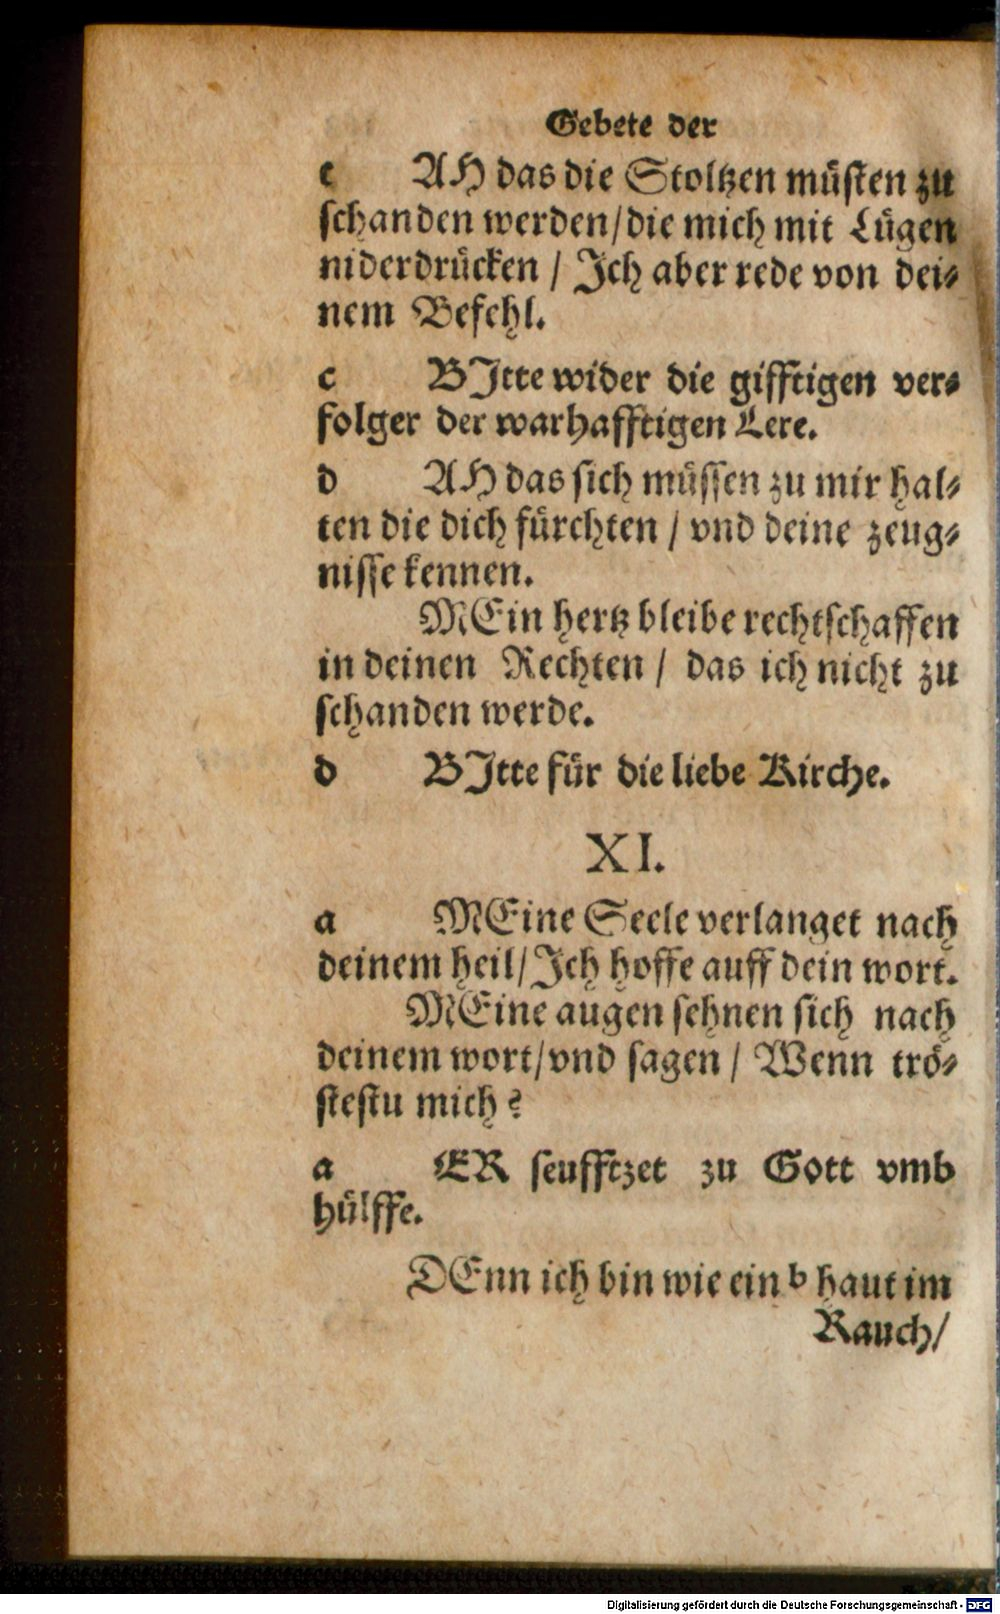 Gebete der
c AH das die Stoltzen müsten zu
schanden werden/die mich mit Lügen
niderdrücken / Ich aber rede von dei⸗
nem Befehl.
c BItte wider die gifftigen ver⸗
folger der warhafftigen Lere.
d AH das sich müssen zu mir hal⸗
ten die dich fürchten / vnd deine zeug⸗
nisse kennen.
MEin hertz bleibe rechtschaffen
in deinen Rechten / das ich nicht zu
schanden werde.
d BItte für die liebe Kirche.
XI.
a MEine Seele verlanget nach
deinem heil/Ich hoffe auff dein wort.
MEine augen sehnen sich nach
deinem wort/vnd sagen / Wenn trö⸗
stestu mich?
a ER seufftzet zu Gott vmb
hülffe.
DEnn ich bin wie ein b haut im
Rauch/
Digitalisierung gefördert durch die Deutsche Forschungsgemeinschaft - DFG